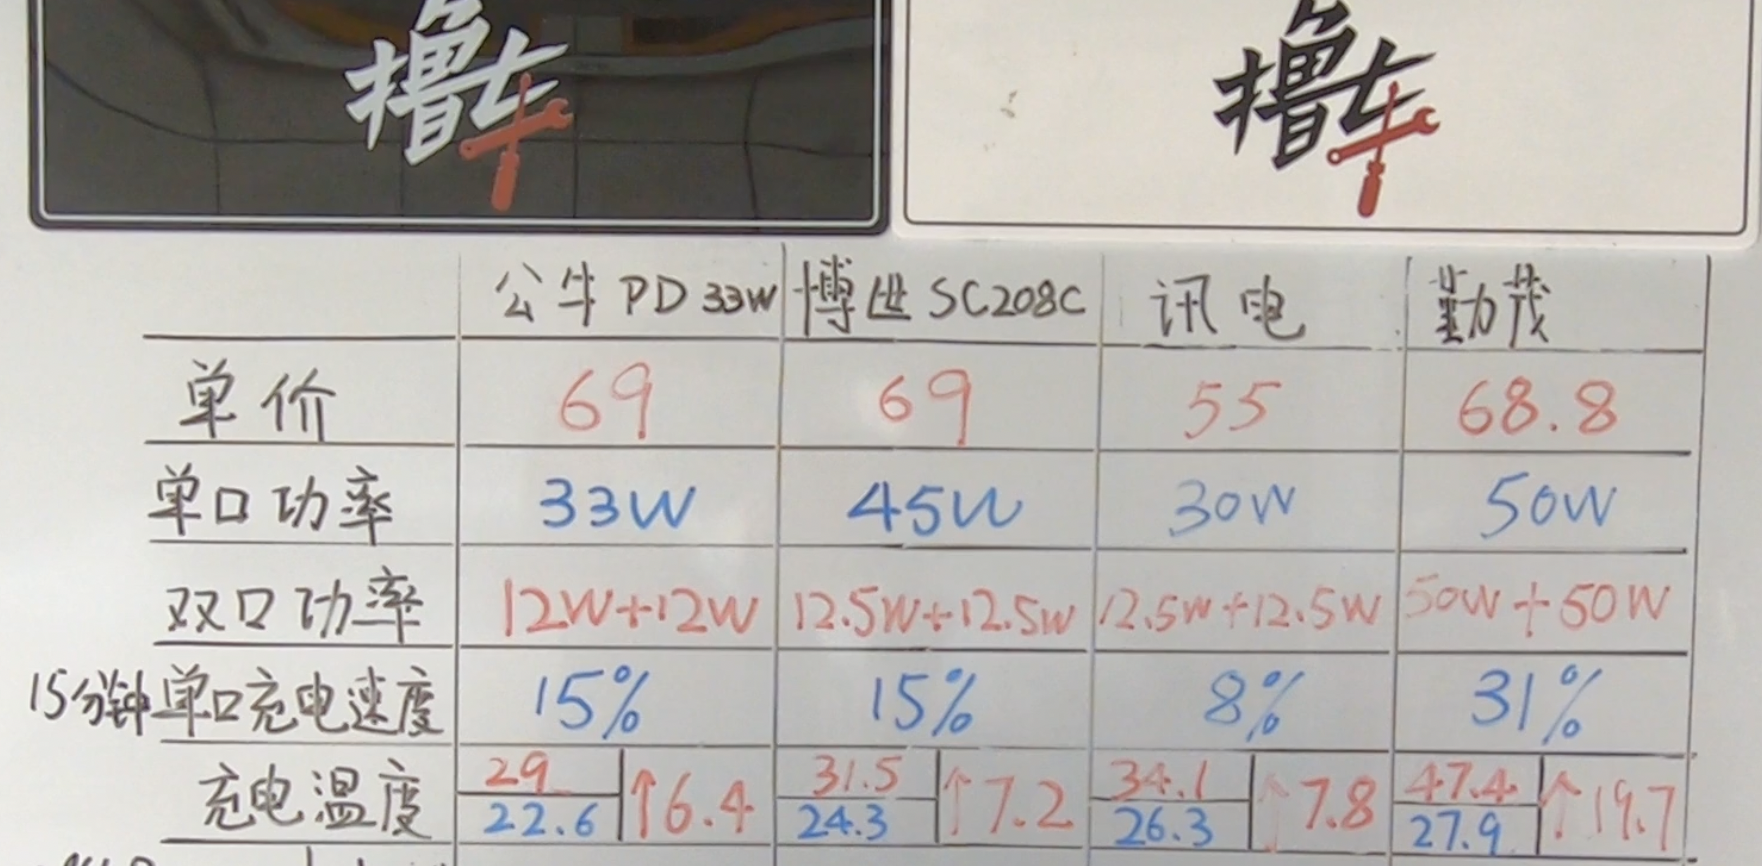 撸车
撸车
公牛 PD 33W 博世 SC208C 讯电 勤茂
单价 69 69 55 68.8
单口功率 33W 45W 30W 50W
双口功率 12W+12W 12.5W+12.5W 12.5W+12.5W 50W+50W
15分钟单口充电速度 15% 15% 8% 31%
充电温度 29 22.6 ↑6.4 31.5 24.3 ↑7.2 34.1 26.3 ↑7.8 47.4 27.9 ↑19.7